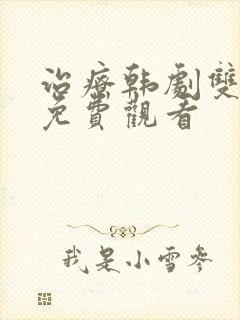 治療韩劇雙
免費觀看
我是小雪參